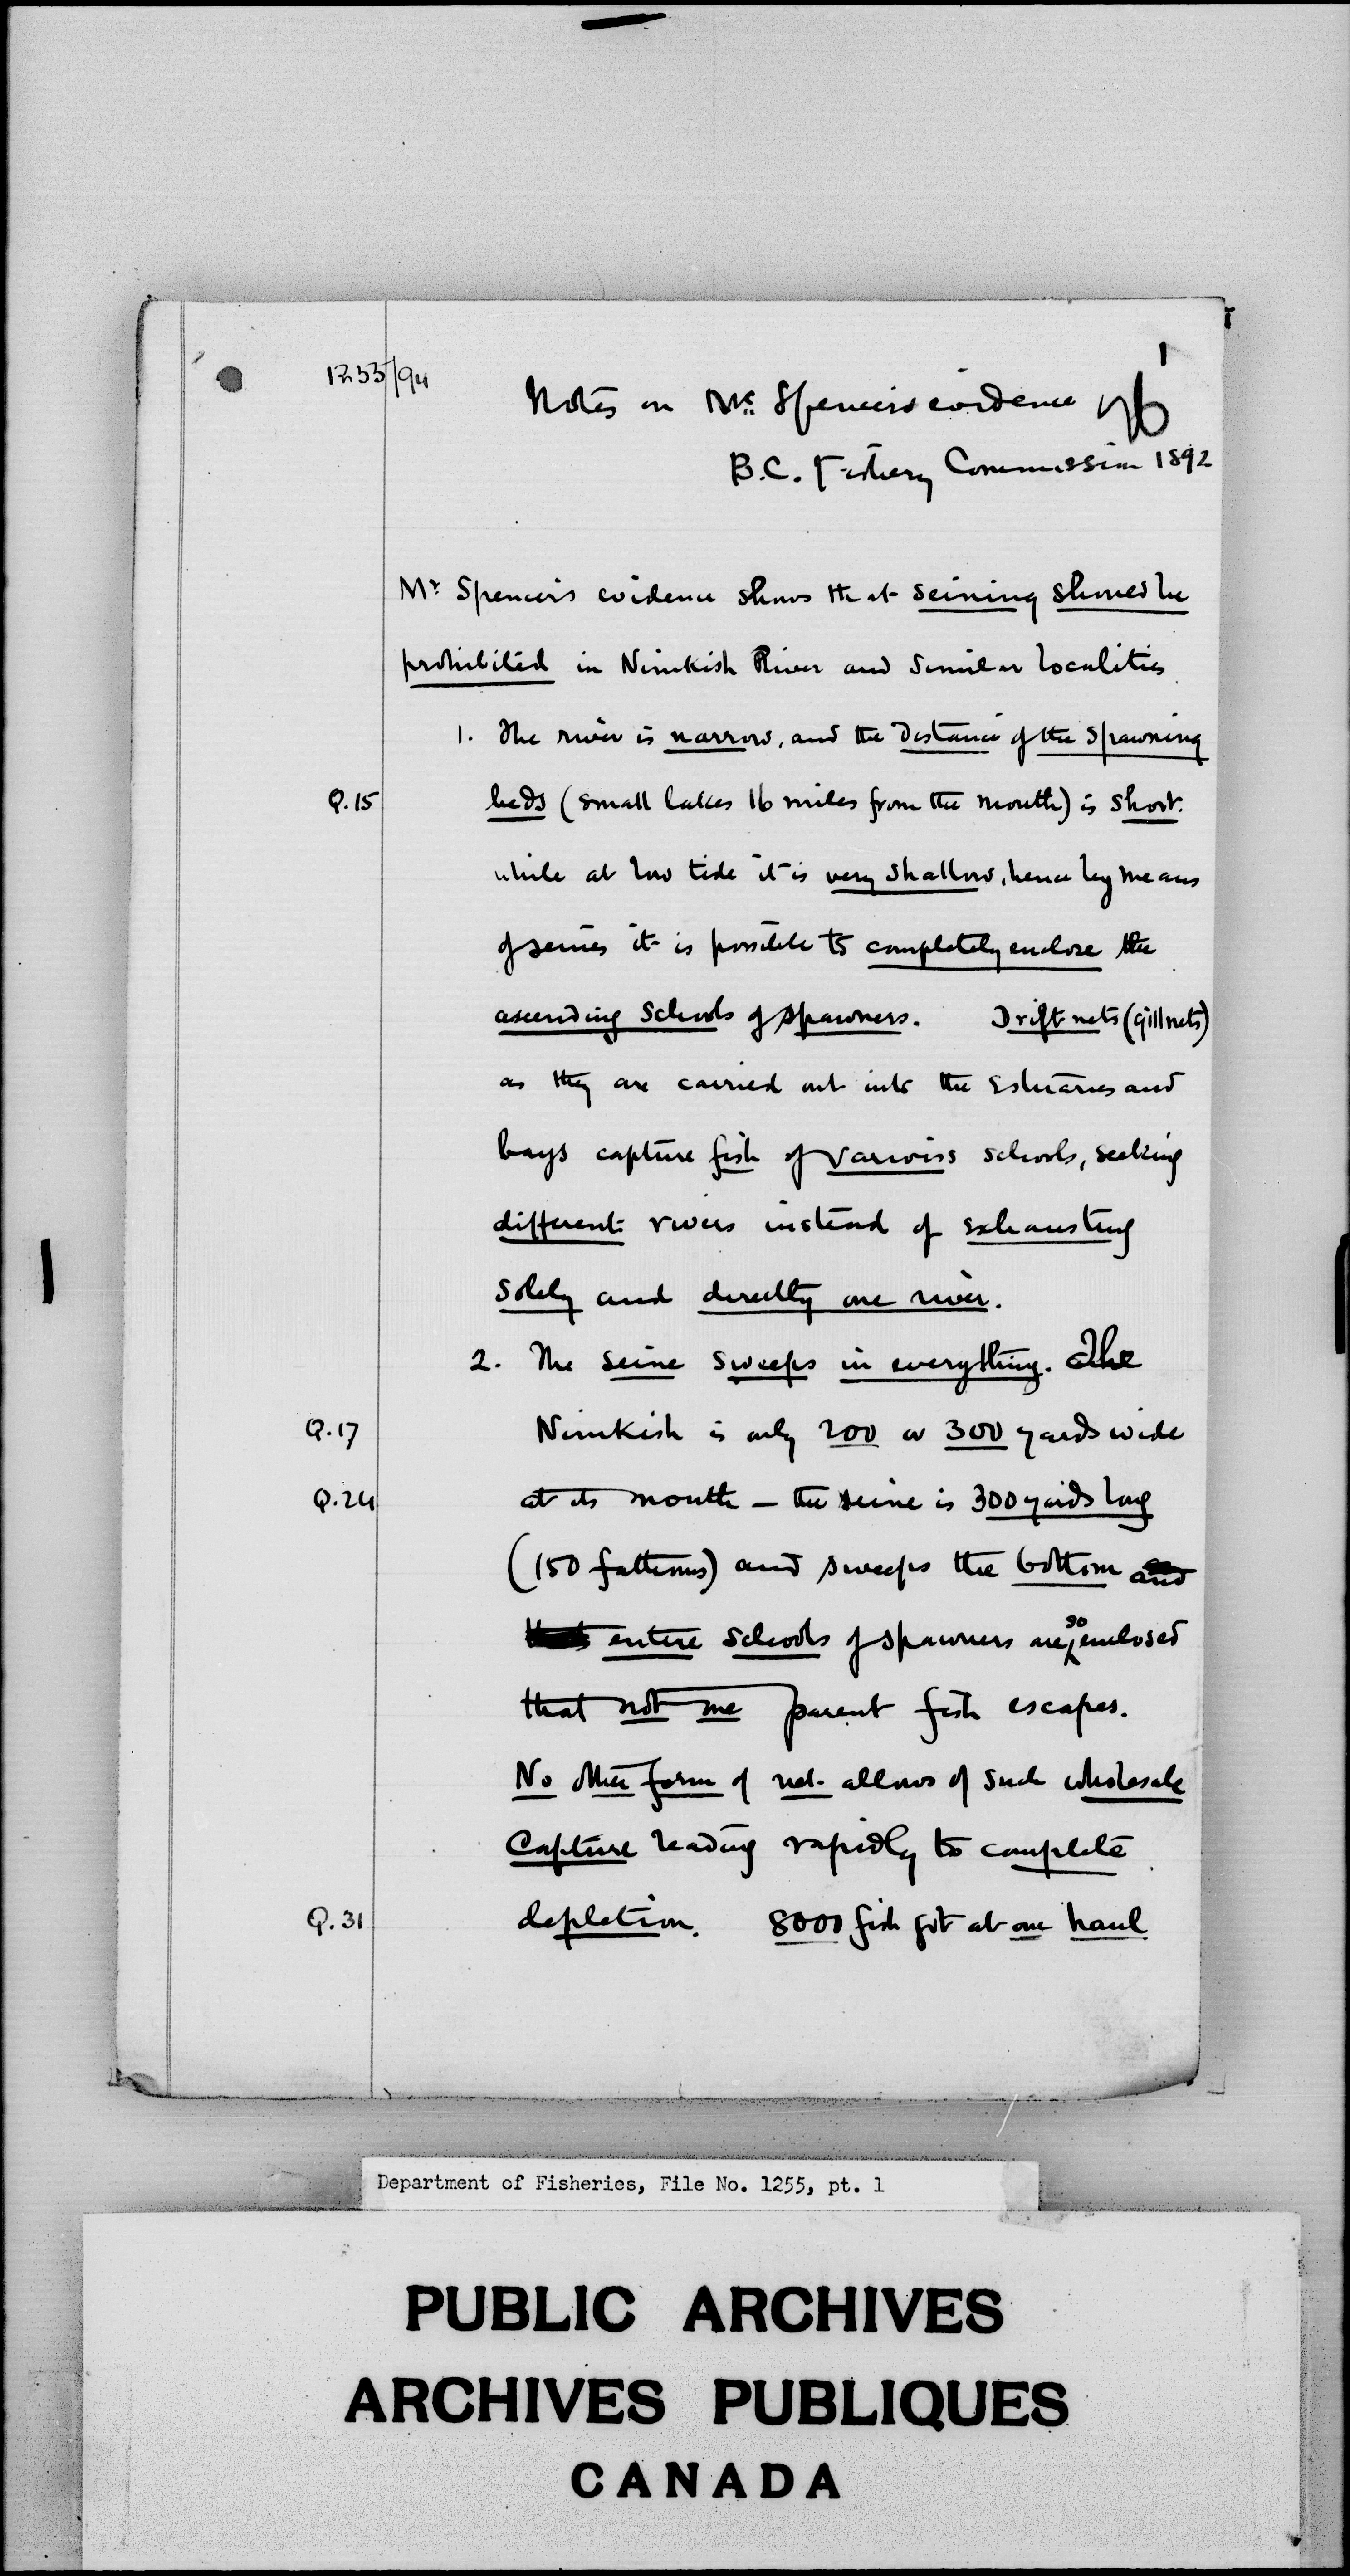 1
1255/94
Notes on Mr. Spencer's evidence
B.C. Fishery Commission 1892
Mr Spencer's evidence shows that seining should be
prohibited in Nimkish River and similar localities
1. The river is narrow, and the distance of the spawning
Q.15 beds (small lakes 16 miles from the mouth) is short.
while at low tide it is very shallow, hence by means
of seines it is possible to completely enclose the
ascending schools of spawners. Drift nets (gill nets)
as they are carried out into the estuaries and
bays capture fish of various schools, seeking
different rivers instead of exhausting
solely and directly one river.
2. The seine sweeps in everything. The
Q.17 Nimkish is only 200 or 300 yards wide
Q.24 at its mouth - the seine is 300 yards long
(150 fathoms) and sweeps the bottom and
entire schools of spawners are so enclosed
that not one parent fish escapes.
No other form of net allows of such wholesale
capture leading rapidly to complete
Q.31 depletion. 8000 fish got at one haul
Department of Fisheries, File No. 1255, pt. 1
PUBLIC ARCHIVES
ARCHIVES PUBLIQUES
CANADA